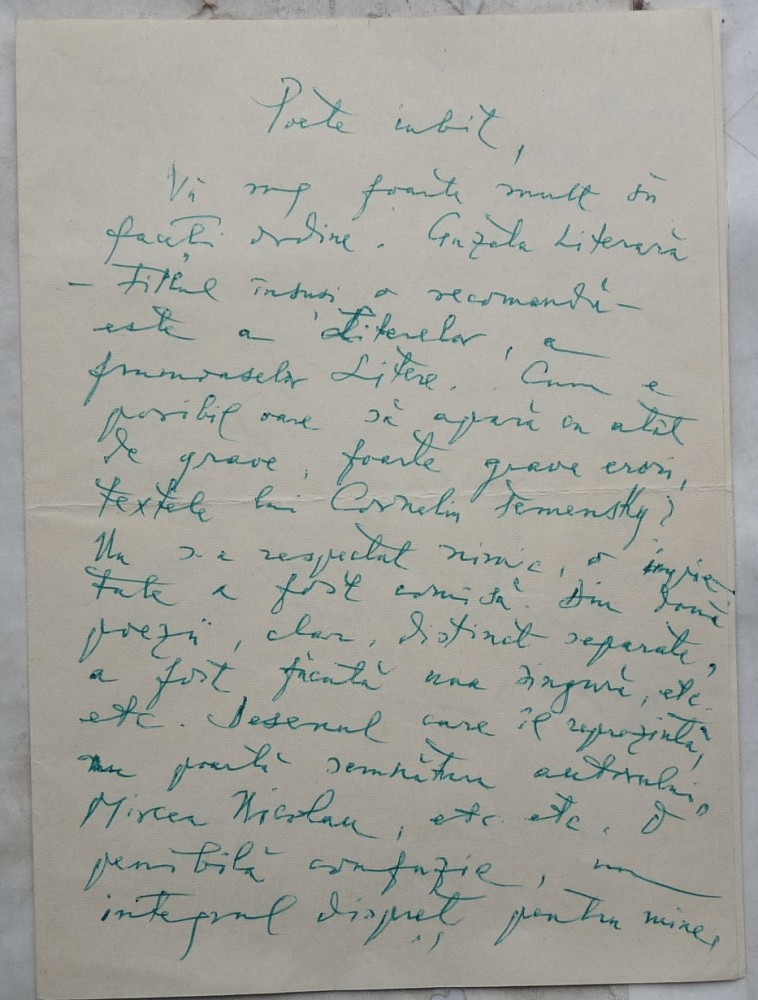 Poete iubit,
Vă rog foarte mult să
faceți ordine. Gazeta Literară
- Titlul însuși o recomandă -
este a Literelor, a
frumoaselor Litere. Cum e
posibil oare să apară cu atât
de grave, foarte grave erori,
textele lui Corneliu Temensky?
Nu s-a respectat nimic, o impie-
tate a fost comisă. Din două
poezii, clar, distinct separate,
a fost făcută una singură, etc.
etc. Desenul care îl reprezintă,
nu poartă semnătura autorului,
Mircea Nicolau, etc. etc. O
penibilă confuzie, un
integral dispreț pentru mine,